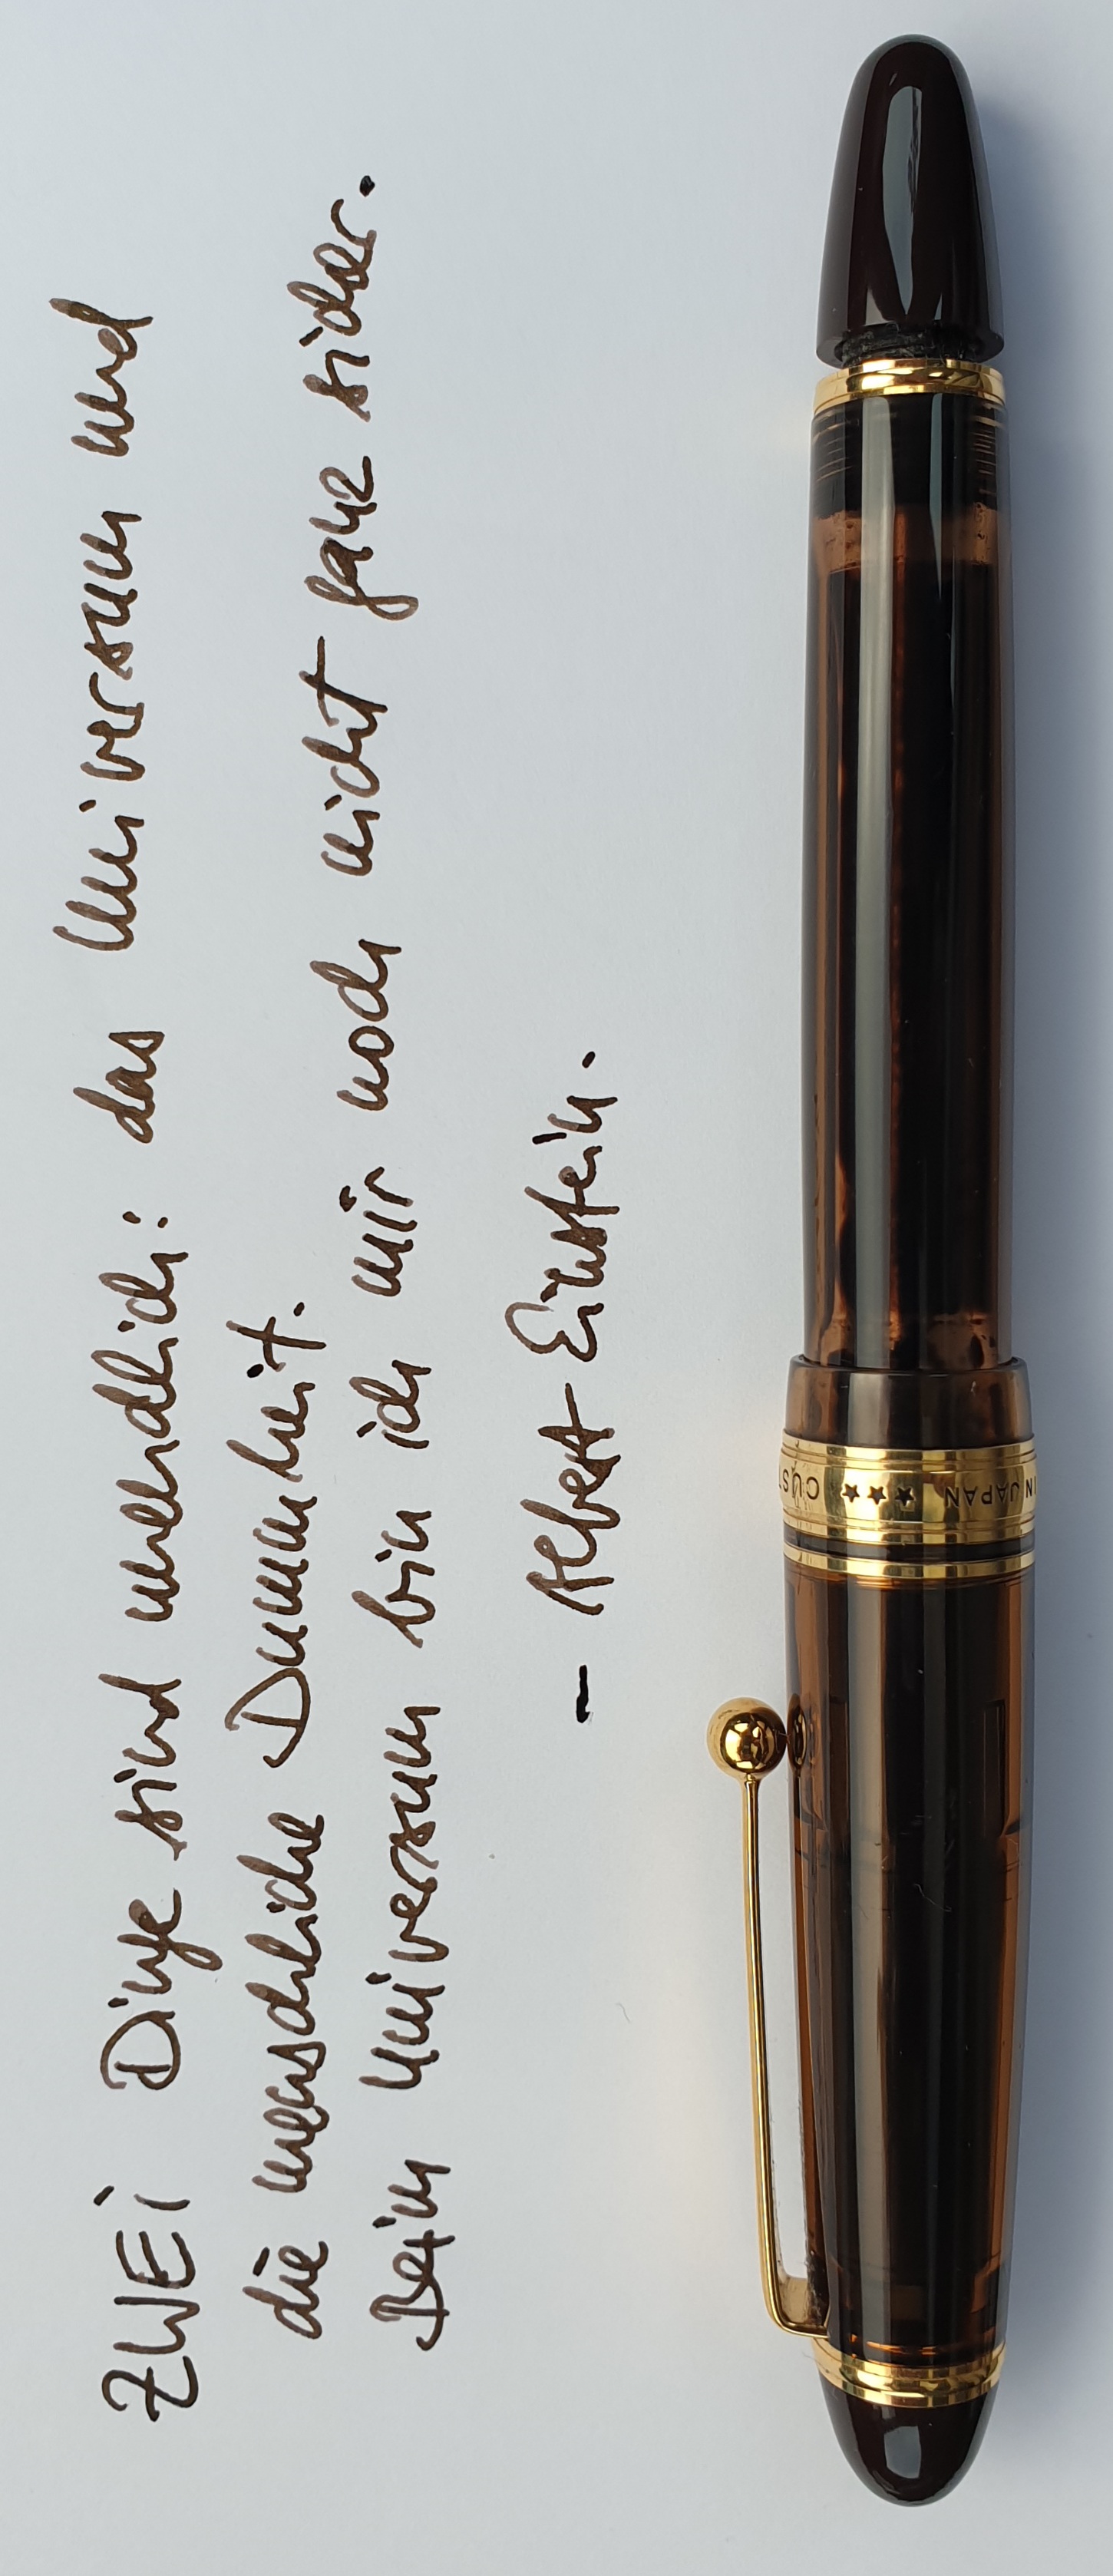 ZWEi Dinge sind unendlich: das Universum und
die menschliche Dummheit.
Beim Universum bin ich mir noch nicht ganz sicher.
- Albert Einstein.
CUST
★★★
IN JAPAN